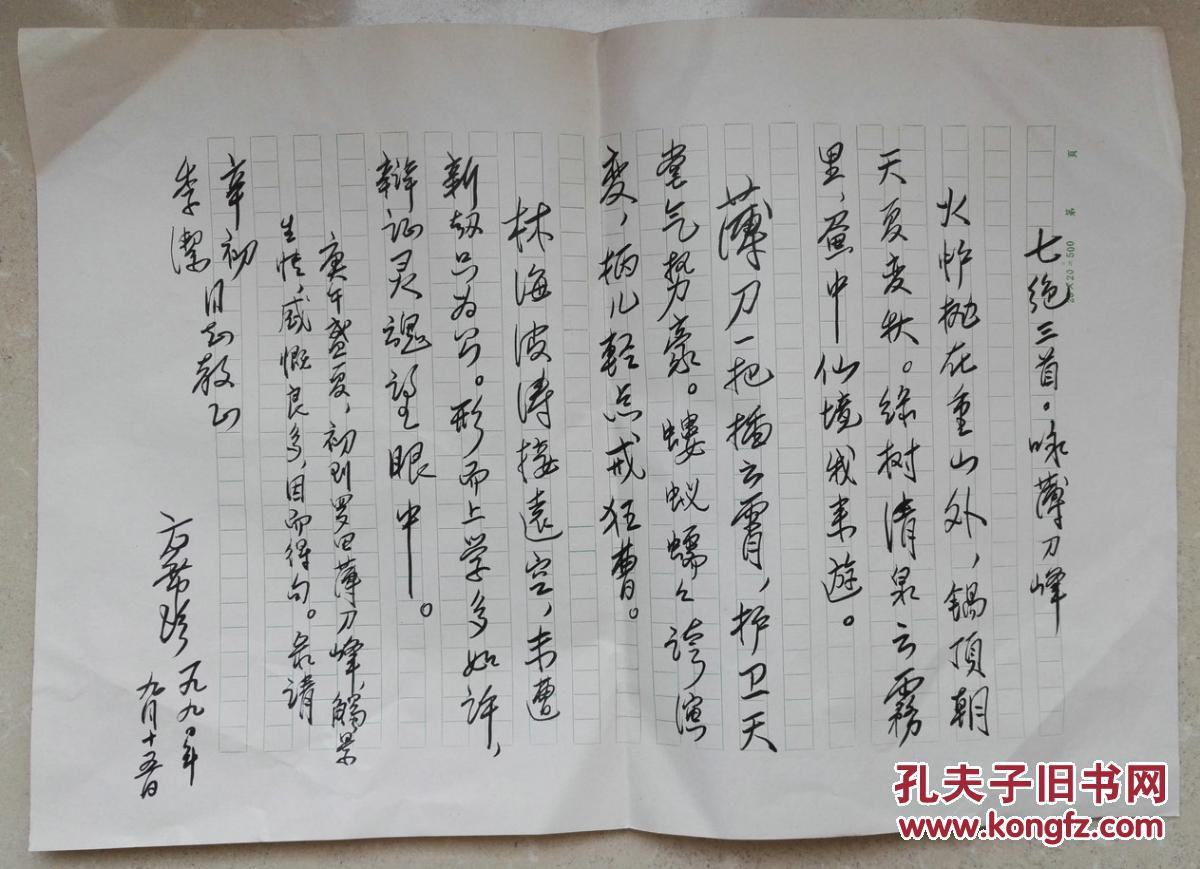 七绝三首。咏薄刀峰
火炉抛在重山外，锅顶朝
天夏变秋。绿树清泉云雾
里，盆中仙境我来遊。
薄刀一把插云霄，护卫天
堂气势豪。蝼蚁蠕々誇演
变，柄儿轻点戒狂曹。
林海波涛接远空，未遭
斩劫只为公。形而上学多如许，
辩证灵魂望眼中。
庚午盛夏，初到罗田薄刀峰，觸景
生情，感慨良多，因而得句。录请
辛初
李潔 同志教正
一九九〇年
九月十五日
20×20=500 第 頁
孔夫子旧书网
www.kongfz.com